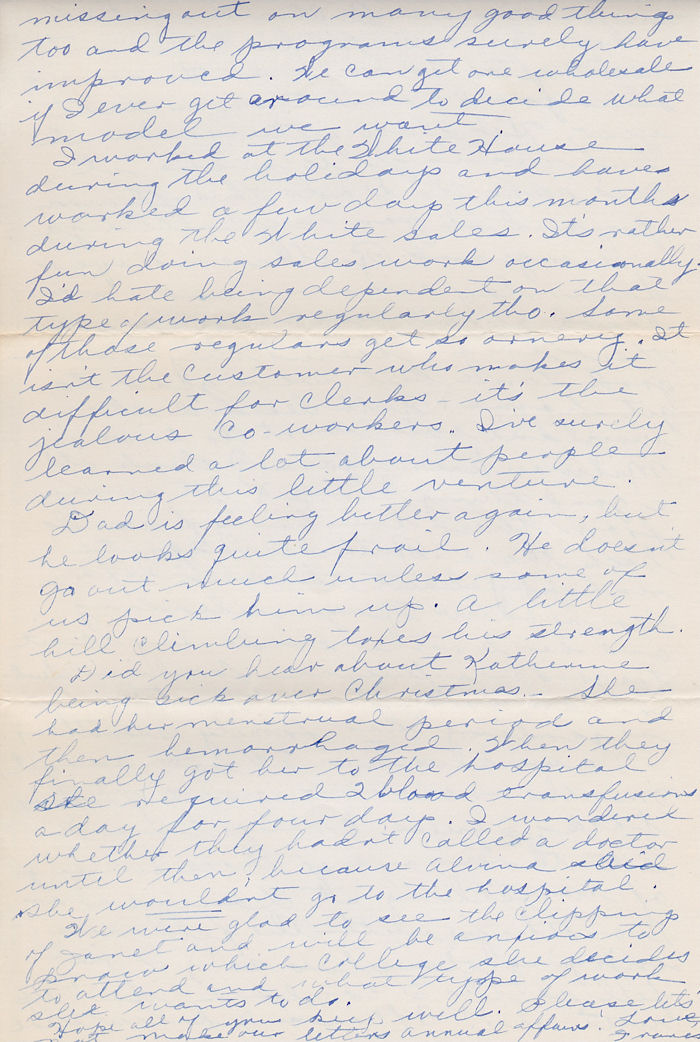 missing out on many good things
too and the programs surely have
improved. We can get one wholesale
if I ever get around to decide what
model we want.
I worked at the White House
during the holidays and have
worked a few days this month
during the White sales. It's rather
fun doing sales work occasionally.
I'd hate being dependent on that
type of work regularly tho. Some
of those regulars get so ornery. It
isn't the customer who makes it
difficult for clerks - it's the
jealous co-workers. I've surely
learned a lot about people
during this little venture.
Dad is feeling better again, but
he looks quite frail. He doesn't
go out much unless some of
us pick him up. A little
hill climbing takes his strength.
Did you hear about Katherine
being sick over Christmas. She
had her menstrual period and
then hemorrhaged. When they
finally got her to the hospital
she required 2 blood transfusions
a day for four days. I wondered
whether they hadn't called a doctor
until then, because Alvina said
she wouldn't go to the hospital.
We were glad to see the clipping
of Janet and will be anxious to
know which college she decides
to attend and what type of work
she wants to do.
Hope all of you keep well. Please let's
not make our letters annual affairs. Love,